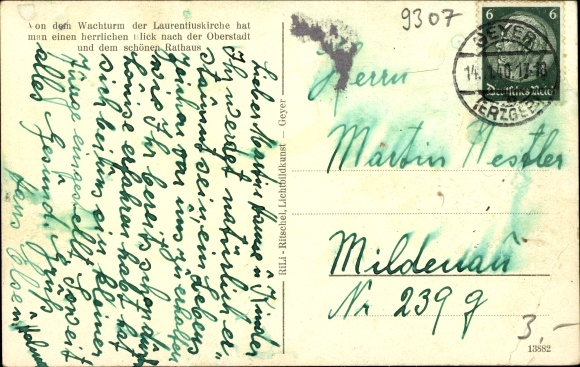 Von dem Wachturm der Laurentiuskirche hat
man einen herrlichen Blick nach der Oberstadt
und dem schönen Rathaus
9307
6 6
GEYER
14. 40.17-18
Deutsches Reich
(ERZGEB)
Herrn
Martin Nestler
Mildenau
Nr 239 g
3,-
13882
RILI - Ritschel, Lichtbildkunst — Geyer
Lieber Martin Hanna u Kinder
Ihr werdet natürlich er-
staunt sein, ein Lebens
zeichen von uns zu erhalten
wie Ihr bereits schon durch
Louise erfahren habt hat
sich bei uns ein kleiner
Junge eingestellt. Soweit
alles Gesund. Gruß
Hans Else u Helmut